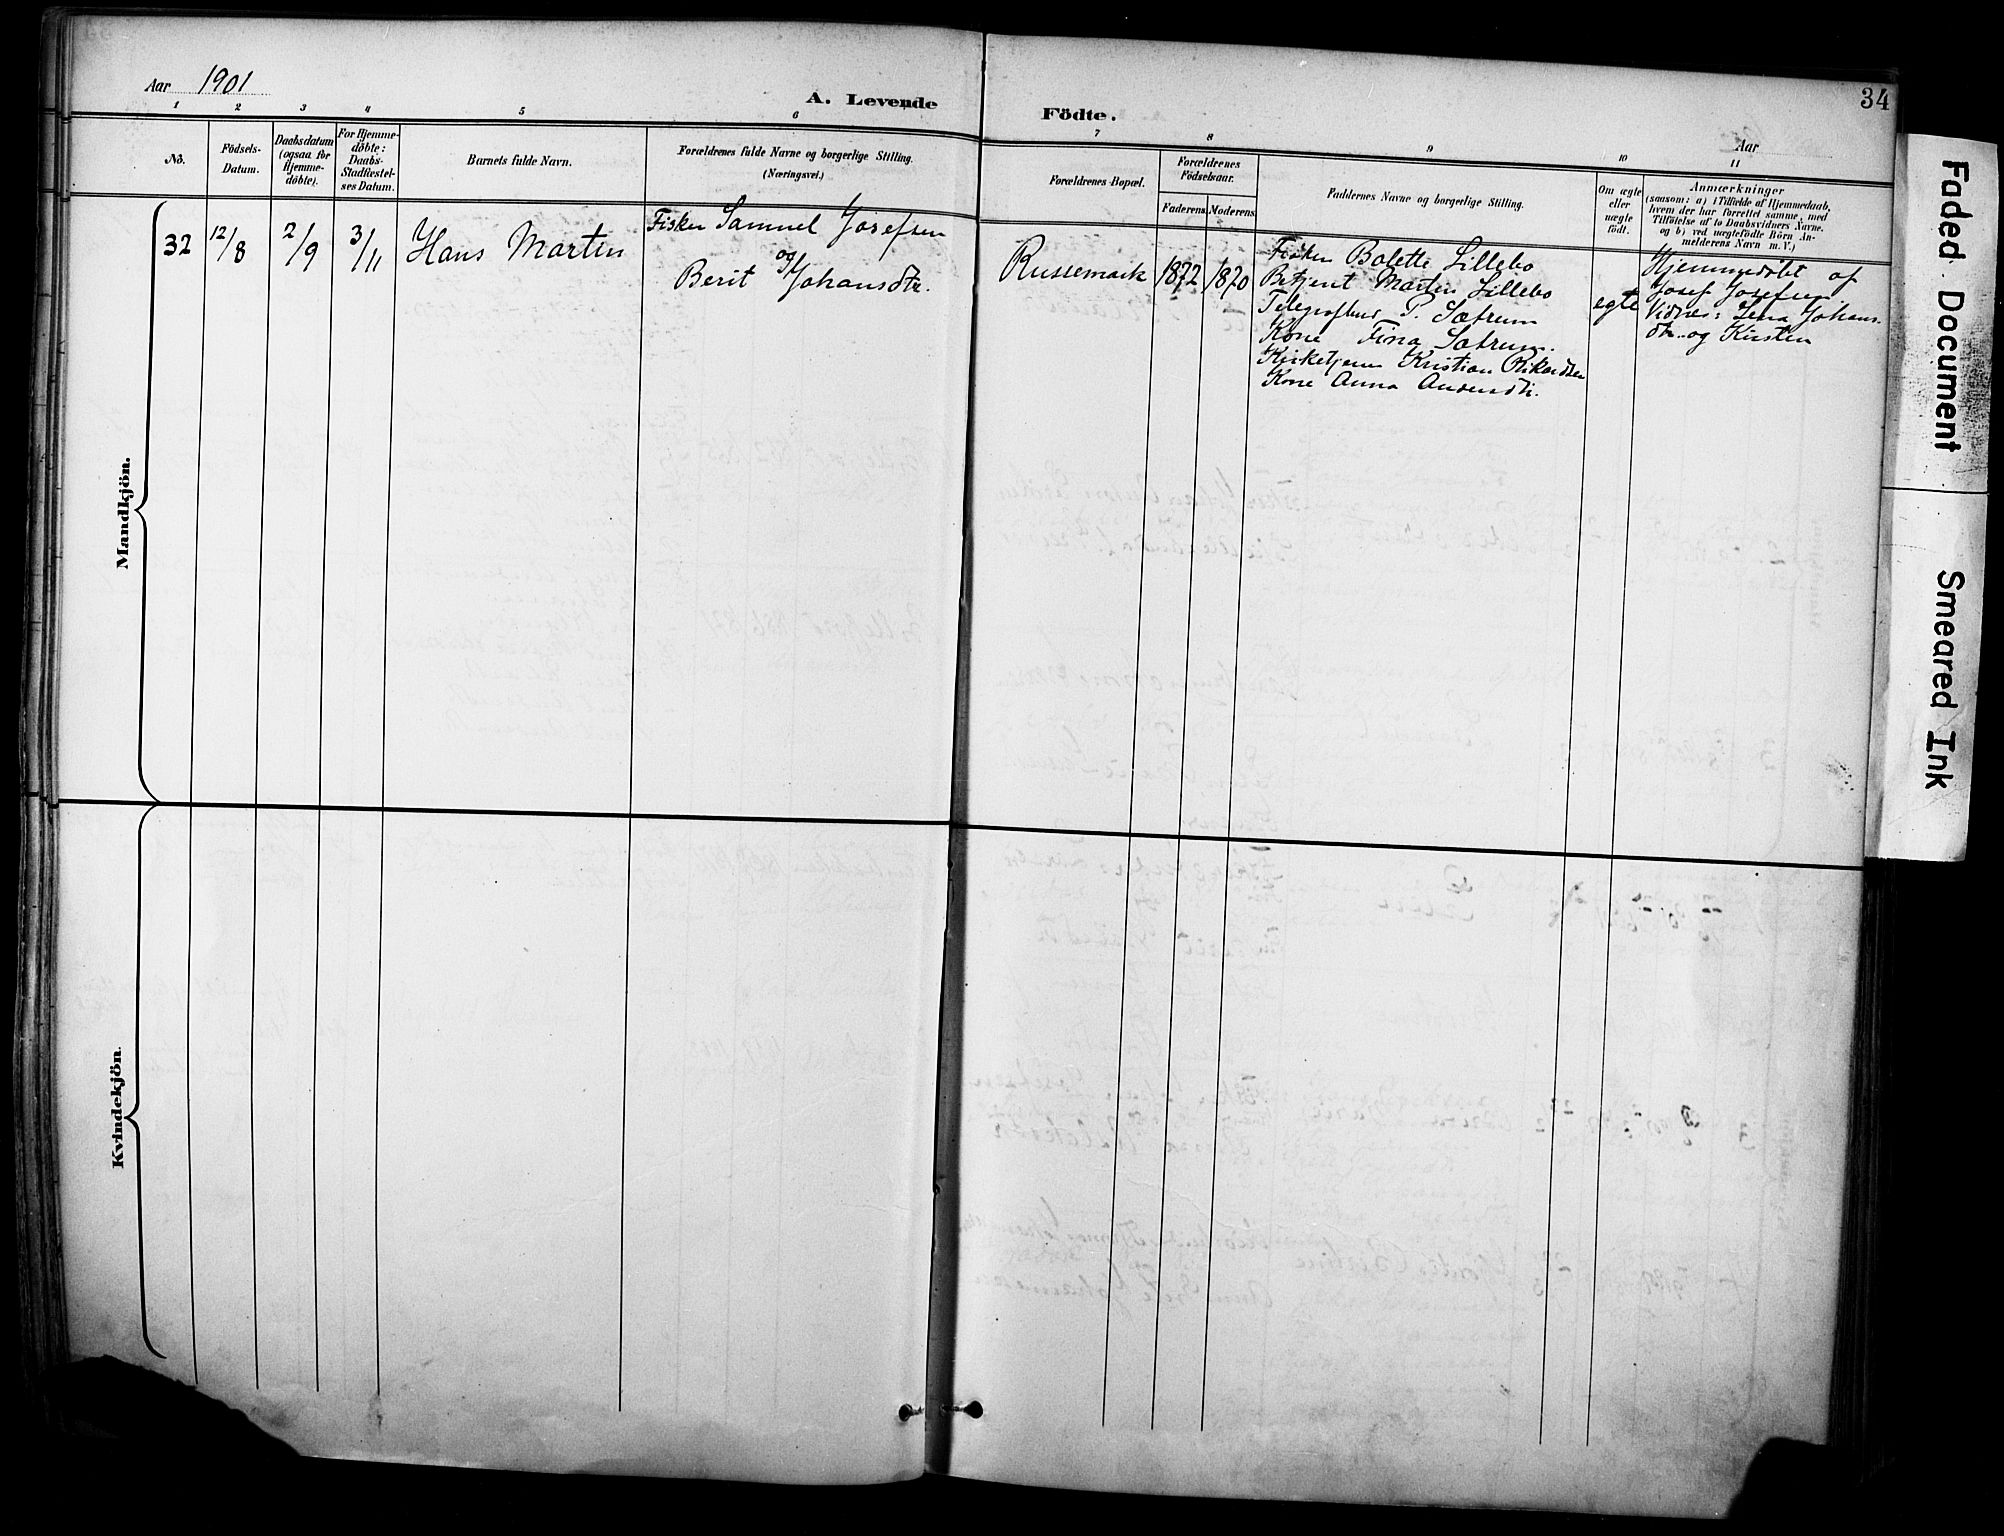 Aar 1901
A. Levende
Födte.
Aar
34
1 2 3 4 5 6 7 8 9 10 11
No.
Födsels-
Datum.
Daabsdatum
(ogsaa for
Hjemme-
döbte).
For Hjemme-
döbte:
Daabs-
Stadfæstel-
ses Datum.
Barnets fulde Navn.
Forældrenes fulde Navne og borgerlige Stilling.
(Næringsvei.)
Forældrenes Bopæl.
Forældrenes
Födselsaar.
Faderens. Moderens.
Faddernes Navne og borgerlige Stilling.
Om ægte
eller
uægte
født.
Anmærkninger
(saasom: a) i Tilfælde af Hjemmedaab,
hvem der har forrettet samme, med
Tilföielse af to Daabsvidners Navne.
og b) ved uægtefödte Börn An-
melderens Navn m. V.)
Mandkjön.
32
12/8
2/9
3/11
Hans Martin
Fisker Samuel Josefsen
og
Berit Johansdtr.
Russemark
1872
1870
Fisker Bolette Lillebo
Betjent Martin Lillebo
Telegrafbud P. Sætrum
Kone Fina Sætrum.
Kirketjener Kristian Rikardsen
Kone Anna Andersdtr.
egte
Hjemmedøbt af
Josef Josefsen.
Vidner: Lena Johans-
dtr. og Kirsten
Kvindekjön.
Faded Document
Smeared Ink